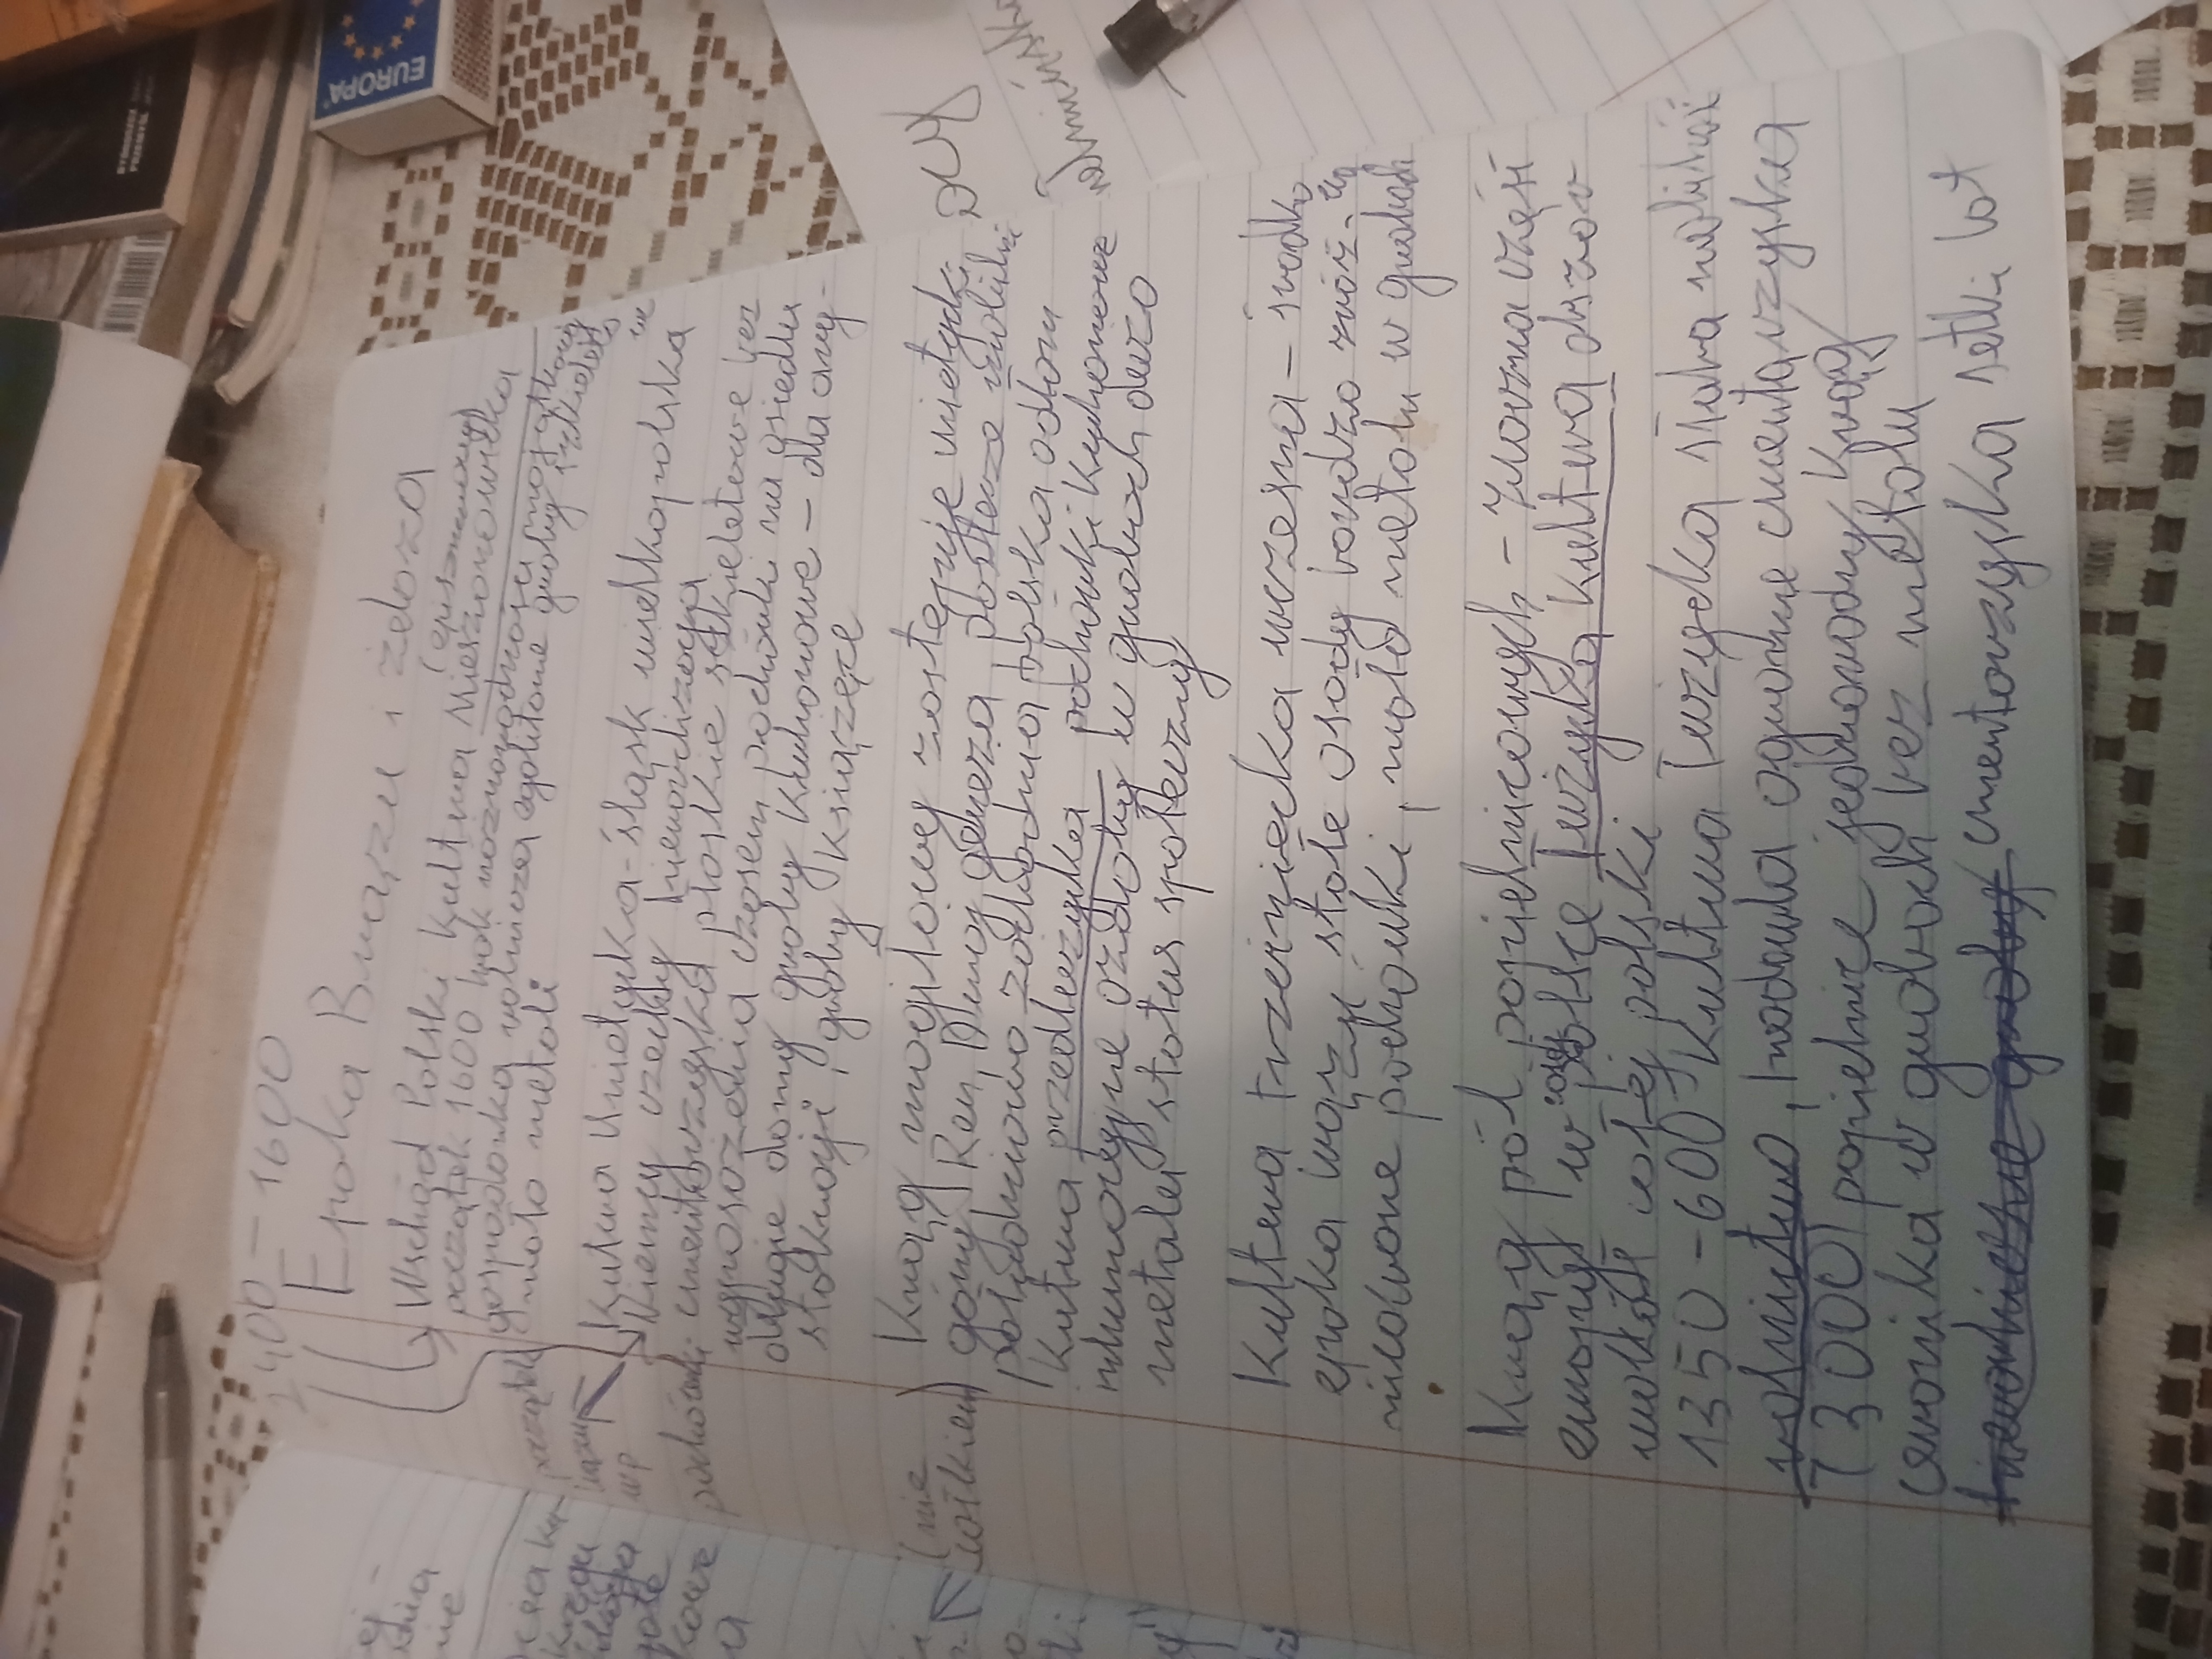 2400 – 1600
Epoka Brązu i żelaza
Wschód Polski Kultura Mierzanowicka
początek 1600 brak różnorodności majątkowej
gospodarka rolnicza egalitarne groby szkieletowe
mało metali
początek
brązu
w p
Kutura Unietycka - śląsk wielkopolska
Niemcy czechy hierarchizacja
pochówki cmentarzyska płaskie szkieletowe bez
wyposożenia czasem pochówki na osiedlu
długie domy groby Kurhanowe – dla ary-
stokracji, groby Książęce
Krąg mogiłowy zastępuje unietycki
(nie
całkiem)
górny Ren, Dunaj geneza,
południowo zachodnia polska odłam
Kutura przedłużycka pochówki Kurhanowe
inhumacyjne ozdoby w grobach dużo
metalu status społeczny
Kultura trzciniecka wczesna – środkowa
epoka brązu stałe osady bardzo zróż-
nicowane pochówki, mało metalu w grobach
Krąg pól popielnicowych – znaczna część
europy w całej polsce Łużycka Kultura obszar
wokół całej polski
1350 – 600 Kultura Łużycka słaba mobilność
rolnictwo, hodowla ogromne cmentarzyska
(3000) popielnice jednorodny Krąg
ceramika w grobach bez metalu
hierarchiczne groby cmentarzyska setki lat
EUROPA